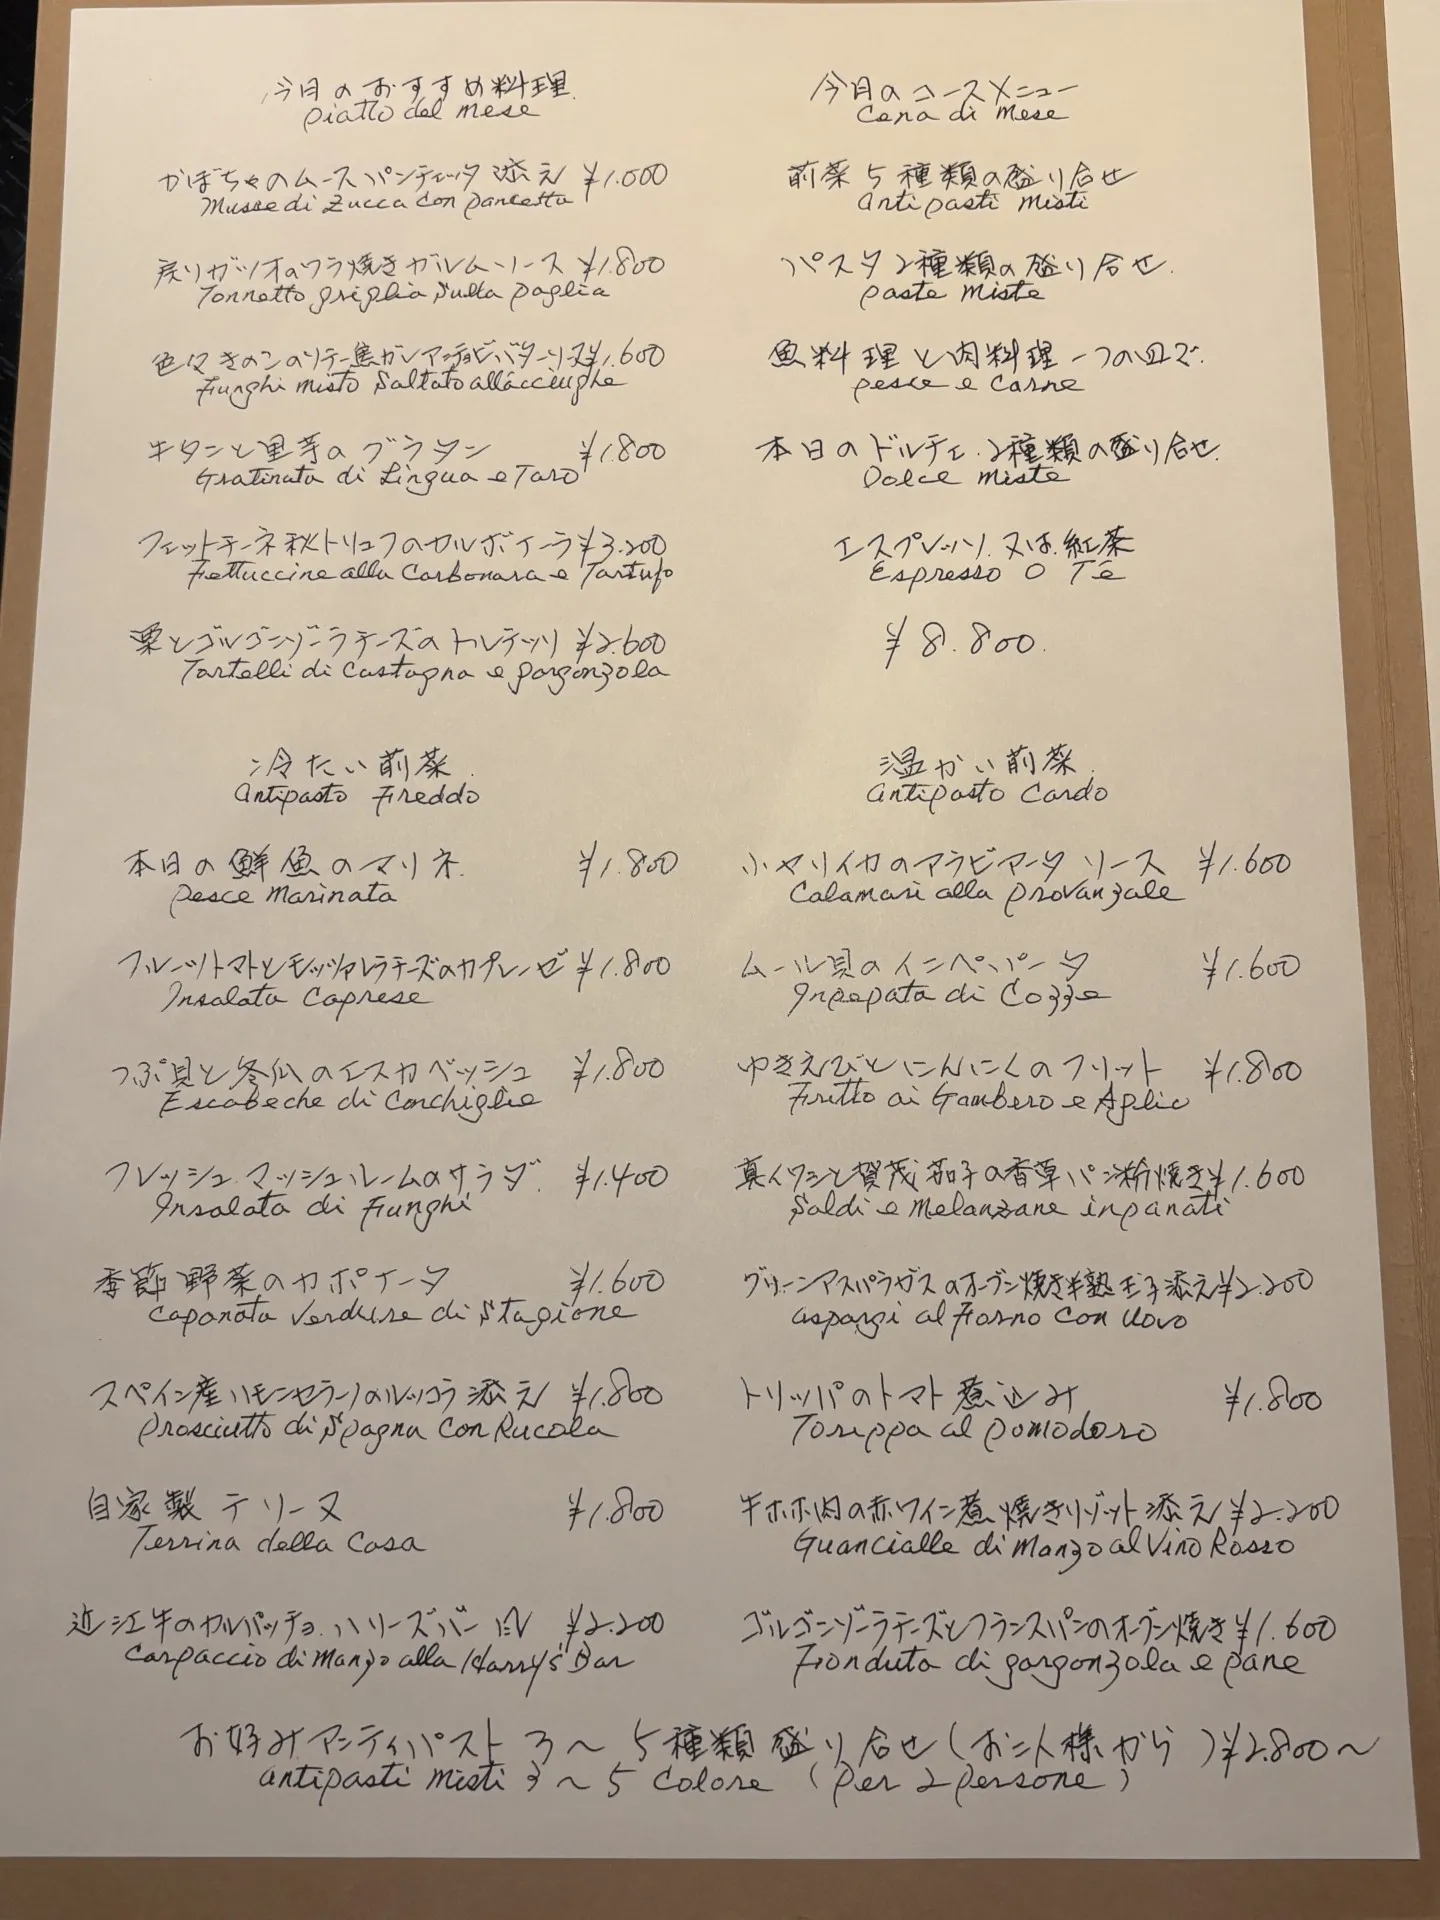 今月のおすすめ料理
piatto del mese
かぼちゃのムース パンチェッタ添え ¥1.000
Musse di Zucca con pancetta
戻りガツオのワラ焼き ガルムソース ¥1.800
Tonnetto griglia Sulla paglia
色々きのこのソテー焦がしアンチョビバターソース ¥1.600
Funghi misto Saltato all'acciughe
牛タンと里芋のグラタン ¥1.800
Gratinata di Lingua e Taro
フェットチーネ秋トリュフのカルボナーラ ¥3.200
Fettuccine alla Carbonara e Tartufo
栗とゴルゴンゾーラチーズのトルテッリ ¥2.600
Tartelli di Castagna e gorgonzola
今月のコースメニュー
Cena di Mese
前菜5種類の盛り合せ
Antipasti Misti
パスタ2種類の盛り合せ
paste Miste
魚料理と肉料理一つの皿で
pesce e Carne
本日のドルチェ 2種類の盛り合せ
Dolce Miste
エスプレッソ 又は 紅茶
Espresso O Tē
¥8.800
冷たい前菜
Antipasto Freddo
本日の鮮魚のマリネ ¥1.800
Pesce Marinata
フルーツトマトとモッツァレラチーズのカプレーゼ ¥1.800
Insalata Caprese
つぶ貝と冬瓜のエスカベッシュ ¥1.800
Escabeche di Conchiglie
フレッシュマッシュルームのサラダ ¥1.400
Insalata di Funghi
季節野菜のカポナータ ¥1.600
Caponata Verdure di Stagione
スペイン産ハモンセラーノのルッコラ添え ¥1.800
Prosciutto di Spagna Con Rucola
自家製テリーヌ ¥1.800
Terrina della Casa
近江牛のカルパッチョ ハリーズバー風 ¥2.200
Carpaccio di Manzo alla Harry's Bar
温かい前菜
Antipasto Cardo
小ヤリイカのアラビアータソース ¥1.600
Calamari alla Provanzale
ムール貝のインペパータ ¥1.600
Inpepata di Cozze
ゆきえびとにんにくのフリット ¥1.800
Fritto ai Gambero e Aglio
真イワシと賀茂茄子の香草パン粉焼き ¥1.600
Saldi e Melanzane inpanati
グリーンアスパラガスのオーブン焼き半熟玉子添え ¥2.200
aspargi al Forno Con Uovo
トリッパのトマト煮込み ¥1.800
Toreppa al pomodoro
牛ホホ肉の赤ワイン煮 焼きリゾット添え ¥2.200
Guancialle di Manzo al Vino Rosso
ゴルゴンゾーラチーズとフランスパンのオーブン焼き ¥1.600
Fonduta di gorgonzola e pane
お好みアンティパスト 3〜5種類盛り合せ(お二人様から) ¥2.800〜
antipasti misti 3〜5 Colore (per 2 persone)